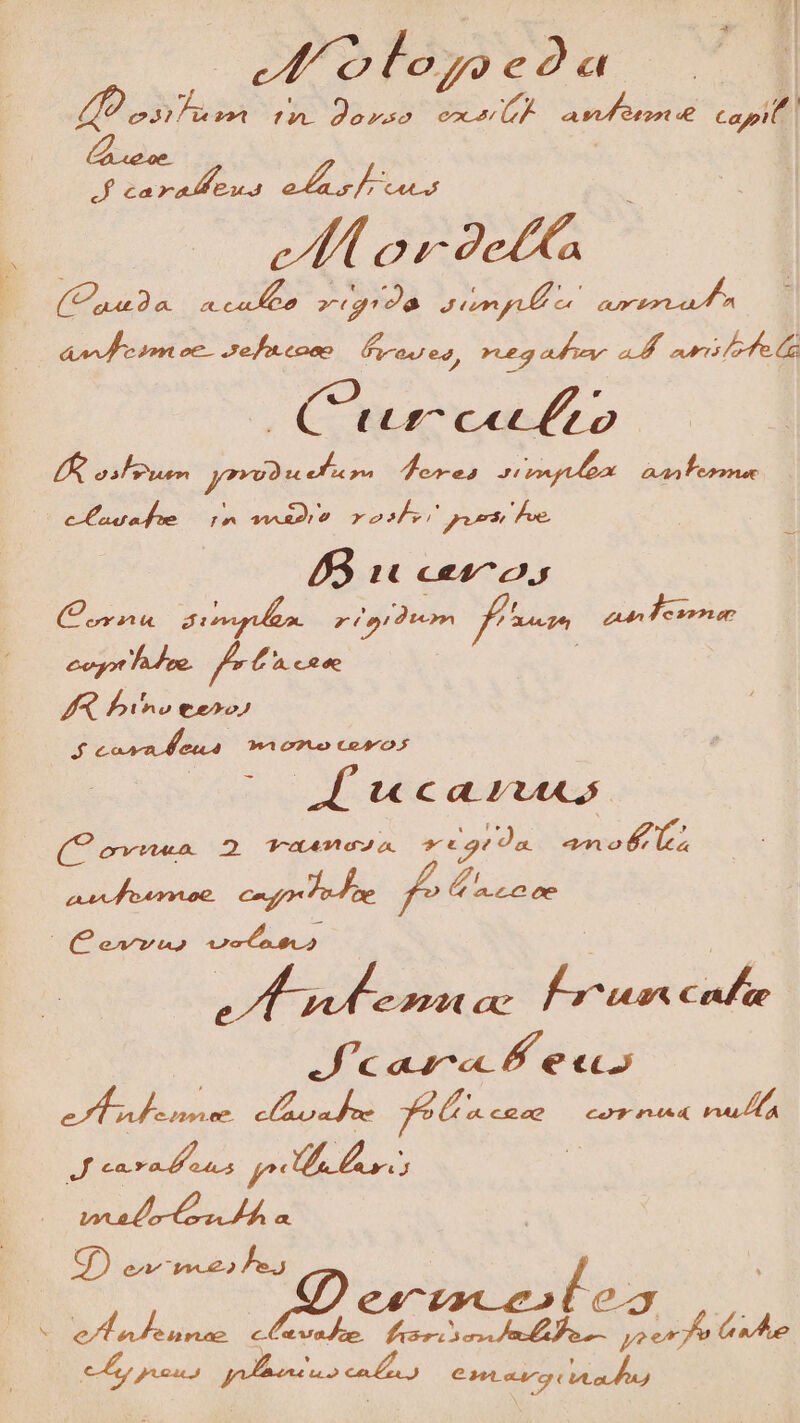 Notopeda
Positum in dorso exsilit antennæ capil
laceæ
Scarabeus elasticus
Mordella
Cauda aculeo rigido simplici armata
antennæ setaceæ breves, negatur ab aristotele
Curculio
Rostrum productum teres simplex antennæ
clavatæ in medio rostri positæ
Buceros
Cornu simplex rigidum fixum antennæ
capitatæ foliaceæ
Rhinoceros
Scarabeus monoceros
Lucanus
Cornua 2 ramosa rigida mobilia
antennæ capitatæ foliaceæ
Cervus volans
Antennæ truncatæ
Scarabeus
Antennæ clavatæ foliaceæ cornua nulla
Scarabeus pillularis
melolontha
Dermestes
Dermestes
Antennæ clavatæ horisontaliter perfoliatæ
clypeus planiusculus emarginatus